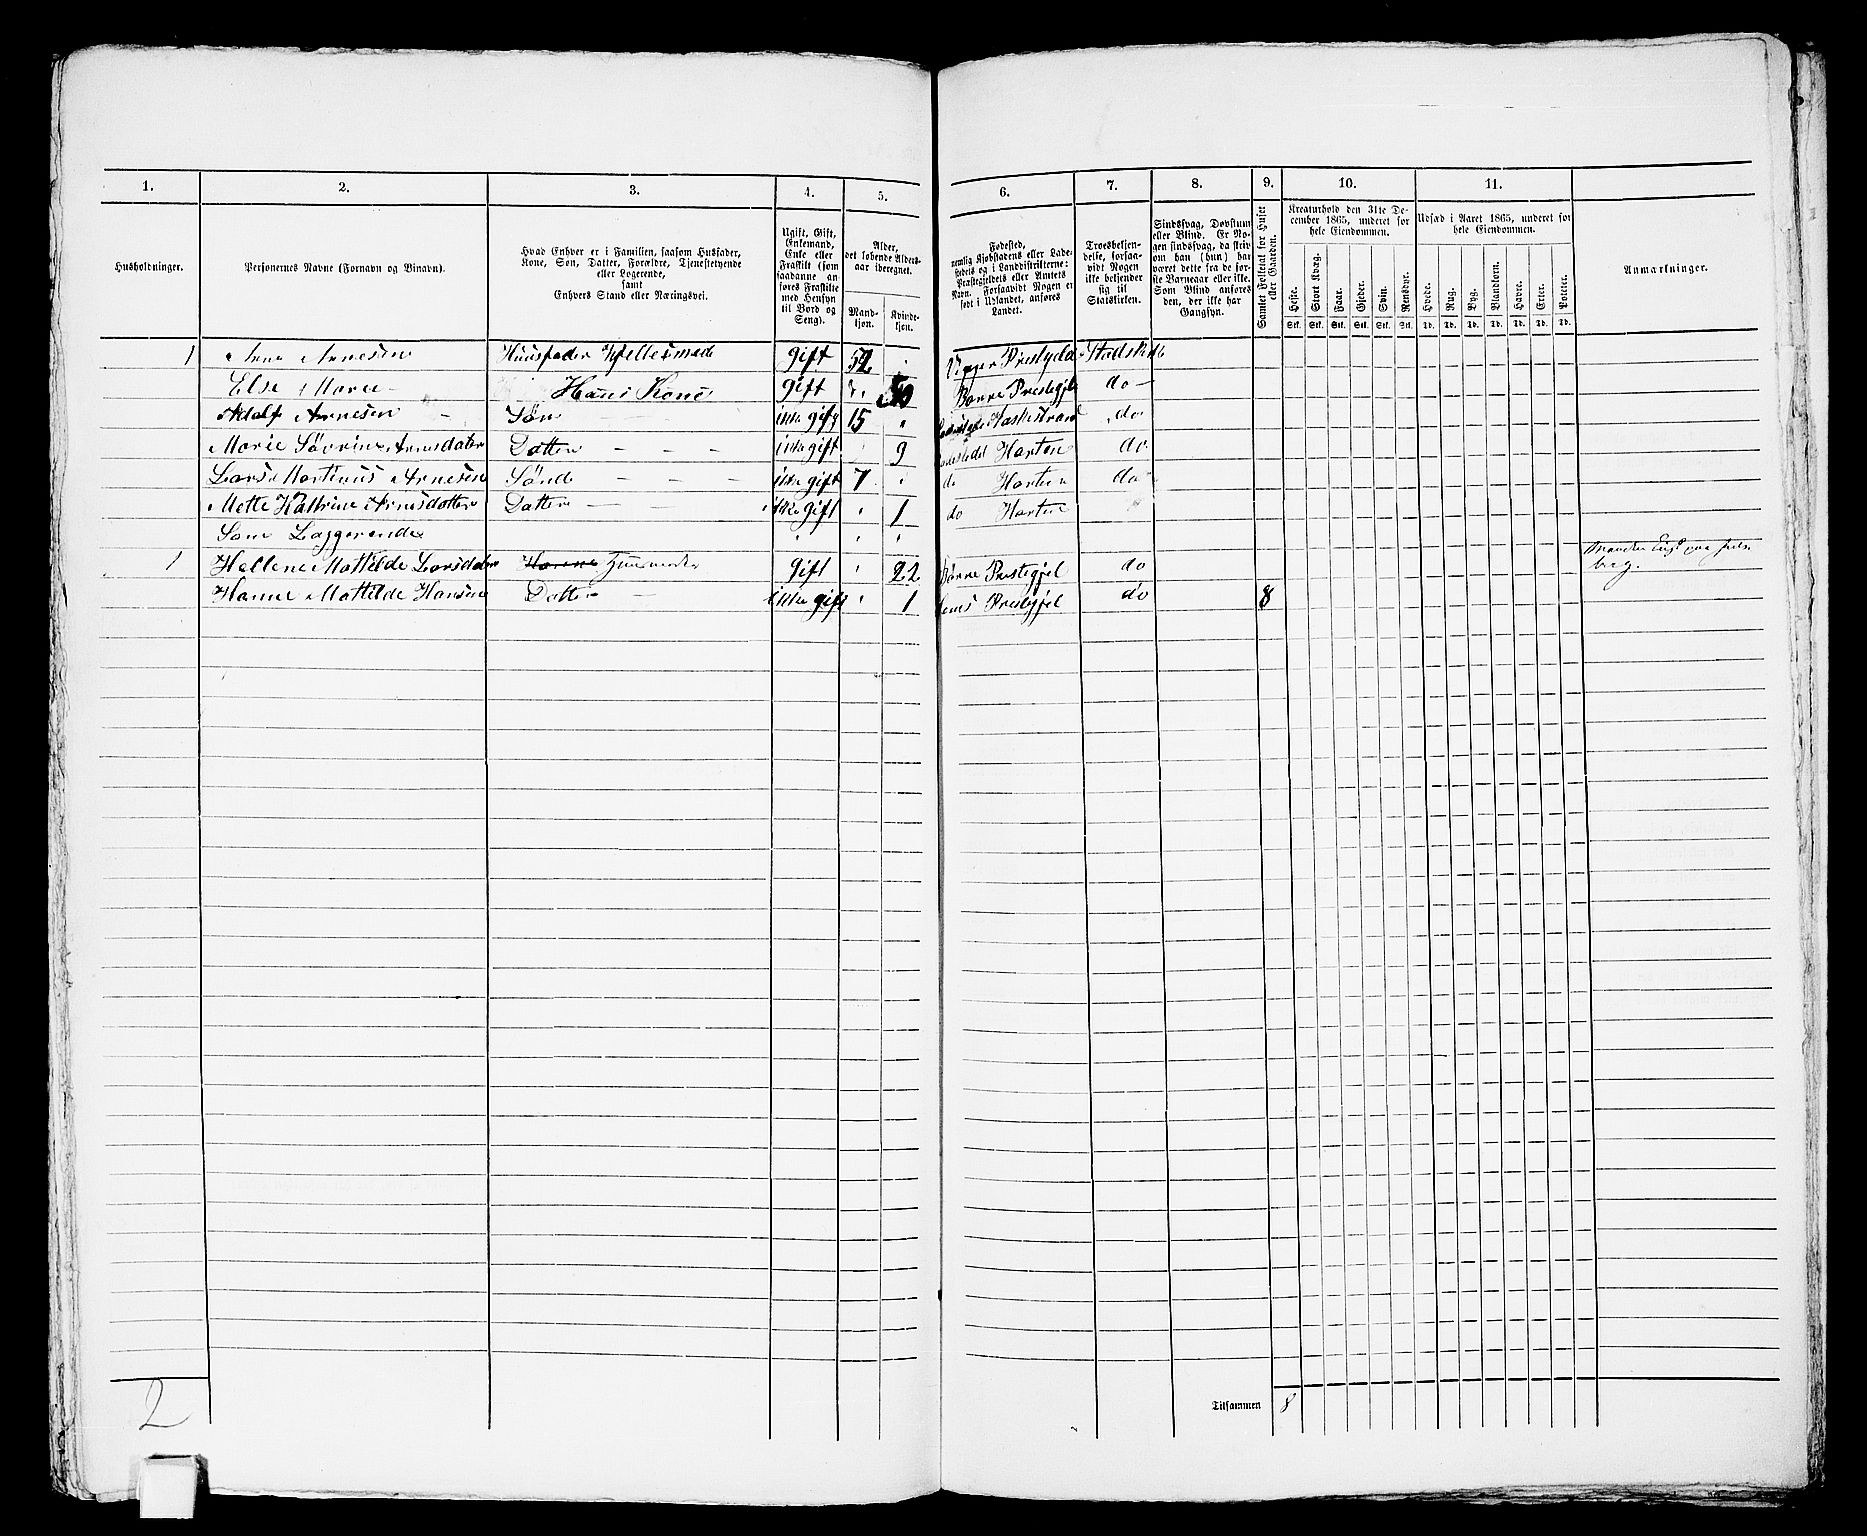 1. 2. 3. 4. 5. 6. 7. 8. 9. 10. 11.
Husholdninger.
Personernes Navne (Fornavn og Binavn).
Hvad Enhver er i Familien, saasom Husfader,
Kone, Søn, Datter, Forældre, Tjenestetyende
eller Logerende,
samt
Enhvers Stand eller Næringsvei.
Ugift, Gift,
Enkemand,
Enke eller
Fraskilt (som
saadanne an-
føres Fraskilte
med Hensyn
til Bord og
Seng).
Alder,
det løbende Alders-
aar iberegnet.
Mand-
kjøn.
Kvinde-
kjøn.
Fødested,
nemlig Kjøbstadens eller Lade-
stedets og i Landdistrikterne:
Præstegjeldets eller Amtets
Navn. Forsaavidt Nogen er
født i Udlandet, anføres
Landet.
Troesbekjen-
delse, forsaa-
vidt Nogen
ikke bekjender
sig til
Statskirken.
Sindssvag, Døvstum
eller Blind. Er No-
gen sindssvag, da skriv
om han (hun) har
været dette fra de før-
ste Barneaar eller ikke.
Som Blind anføres
den, der ikke har
Gangsyn.
Samlet Folketal for Huset
eller Gaarden.
Kreaturhold den 31te De-
cember 1865, underet for
hele Eiendommen.
Heste. Stort Kvæg. Faar. Gjeder. Svin. Rensdyr.
Stk. Stk. Stk. Stk. Stk. Stk.
Udsæd i Aaret 1865, underet for
hele Eiendommen.
Hvede. Rug. Byg. Blandkorn. Havre. Erter. Poteter.
Td. Td. Td. Td. Td. Td. Td.
Anmærkninger.
1 Arnesen Huusfader gift 52 Prestgjeld
Else Marie Hans Kone gift 50 Borre Prestegjel do
Adolf Arnesen Søn ikke gift 15 do
Marie Arnsdater Datter ikke gift 9 Ladestedet Horten do
Lars Martinus Arnesen Sønd ikke gift 7 do Horten do
Mette Kathrine Arnesdatter Datter ikke gift 1 do Horten
Som Loggerende
1 Hellene Mattilde Larsdater Huusmoder gift 22 Borre Prestegjel do
Hanne Mattilde Hansen Datter ikke gift 1 Prestegjel do 8
2
Tilsammen 8